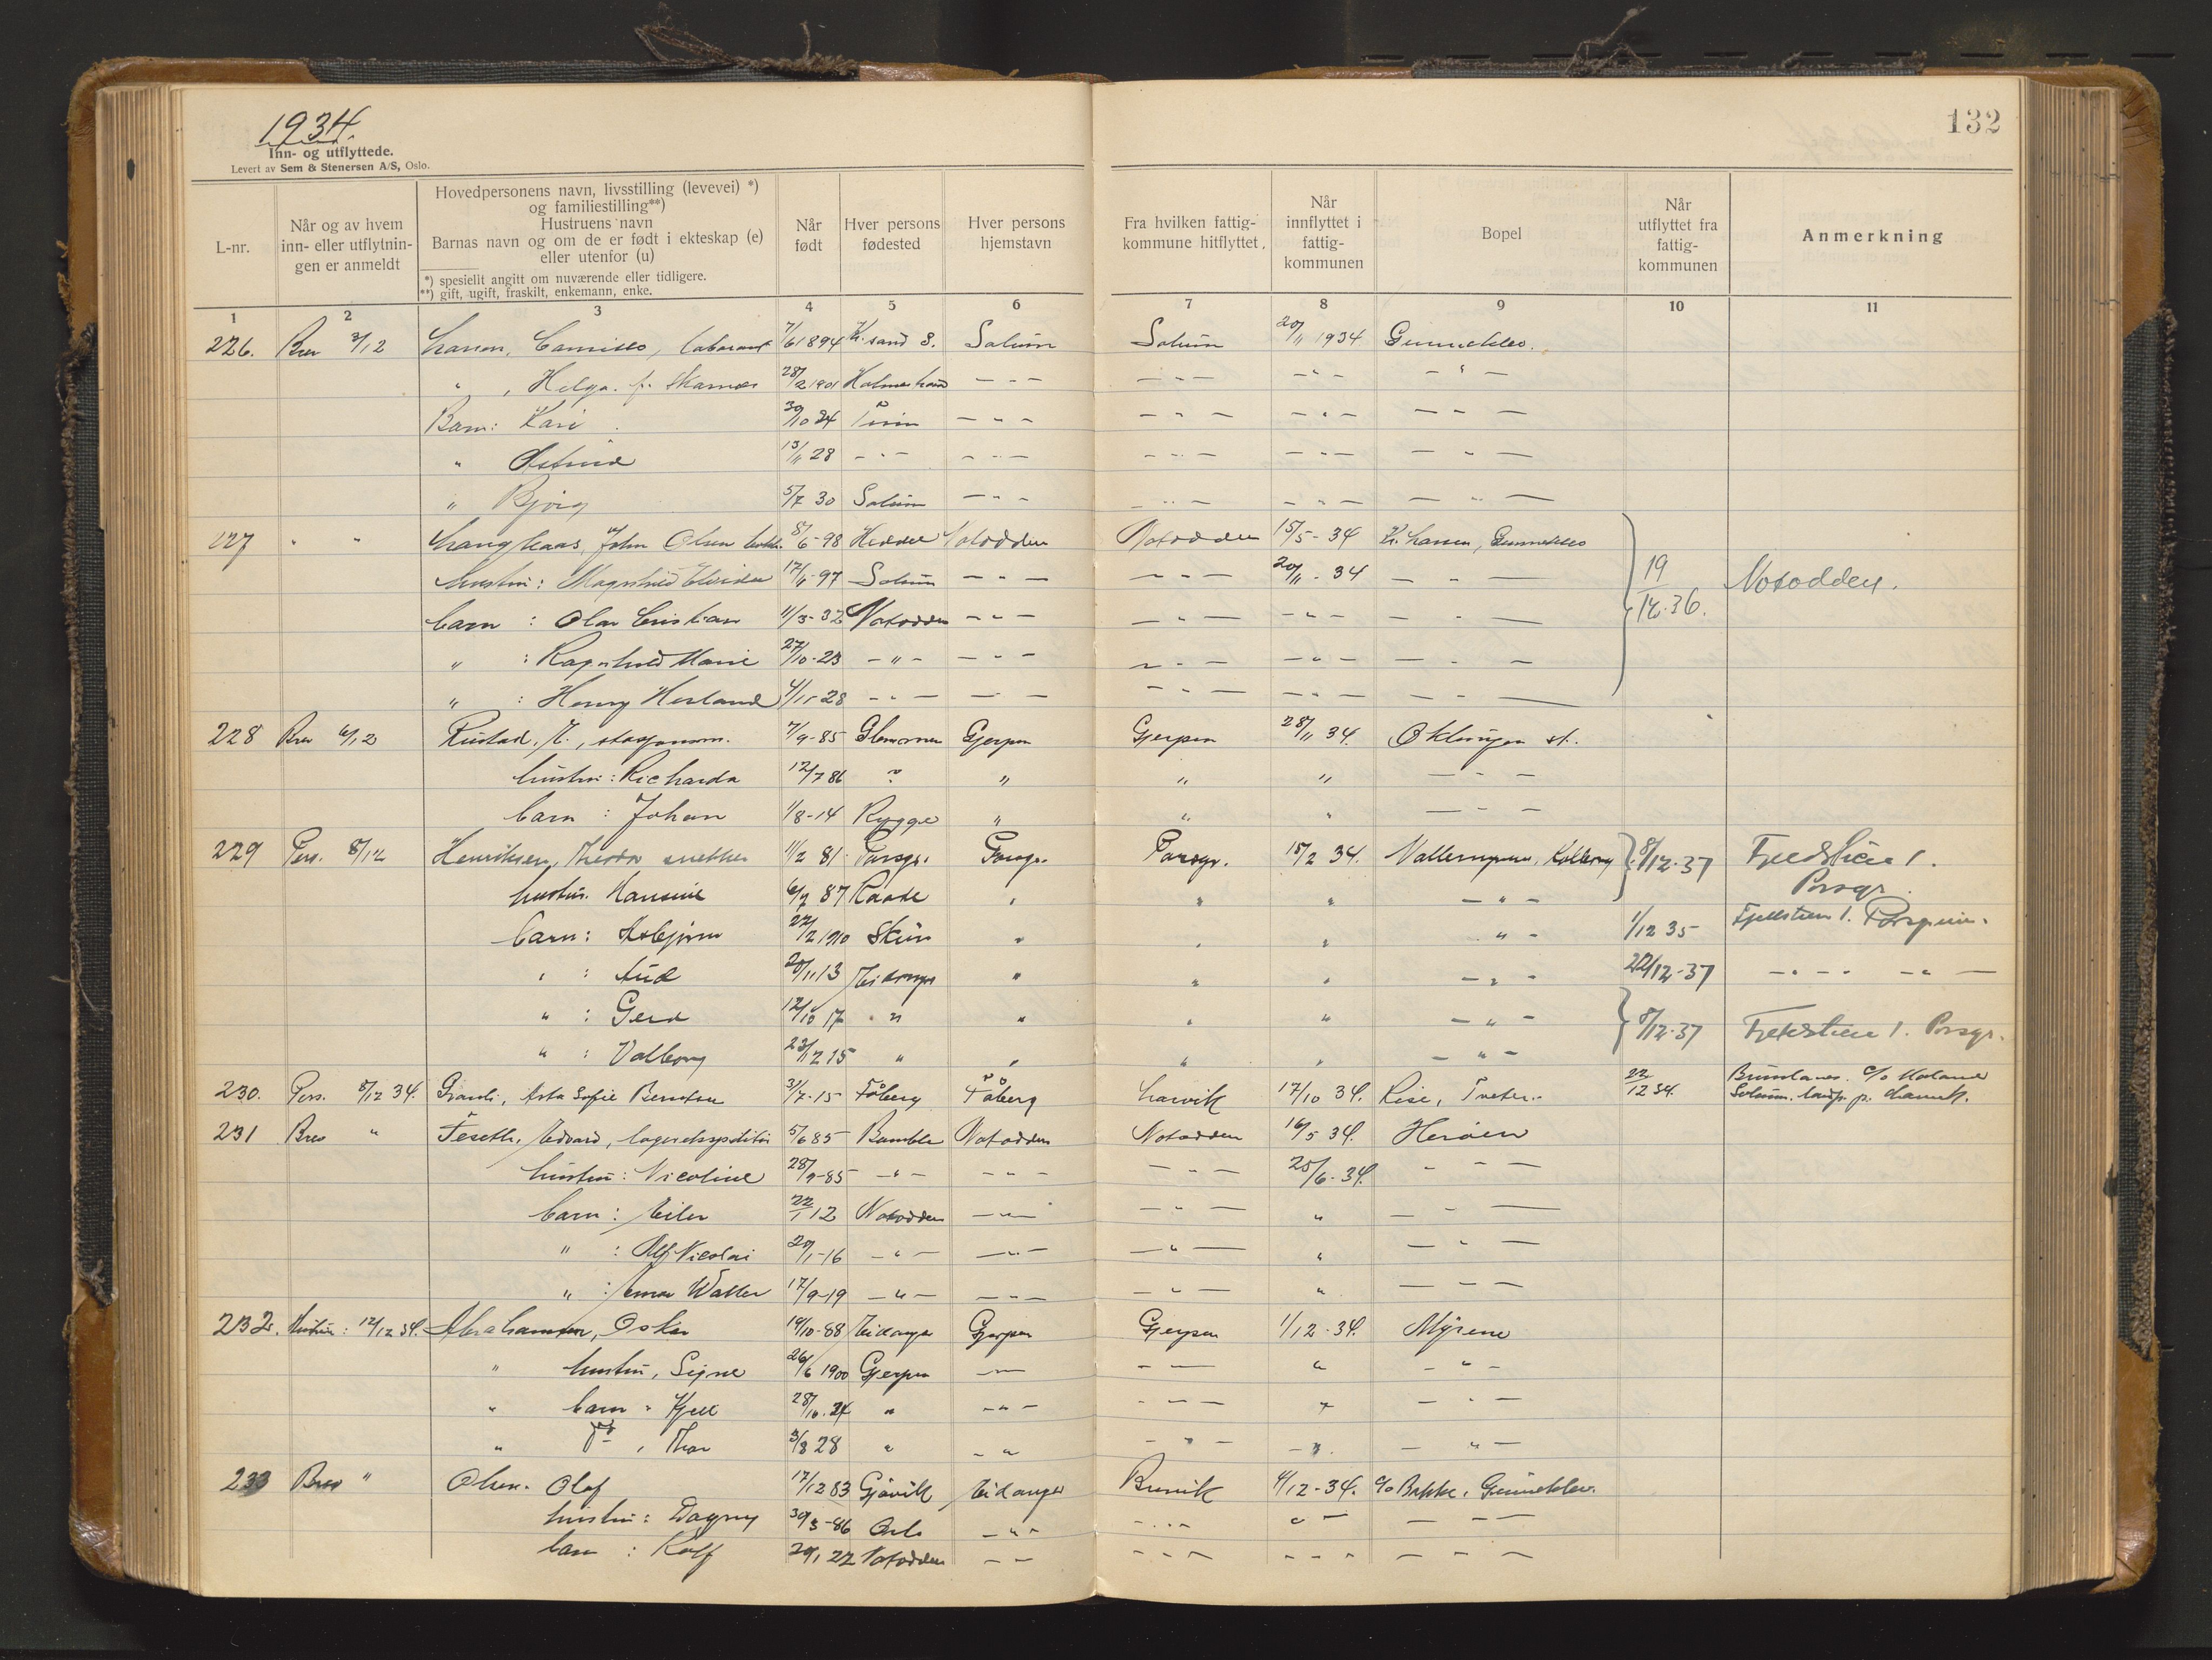 1934.
132
Inn- og utflyttede.
Levert av Sem & Stenersen A/S, Oslo.
L-nr.
Når og av hvem inn- eller utflytnin-gen er anmeldt
Hovedpersonens navn, livsstilling (levevei) *)
og familiestilling**)
Hustruens navn
Barnas navn og om de er født i ekteskap (e)
eller utenfor (u)
*) spesielt angitt om nuværende eller tidligere.
**) gift, ugift, fraskilt, enkemann, enke.
Når født
Hver persons fødested
Hver persons hjemstavn
Fra hvilken fattig-kommune hitflyttet.
Når innflyttet i fattig-kommunen
Bopel
Når utflyttet fra fattig-kommunen
Anmerkning
1 2 3 4 5 6 7 8 9 10 11
226. Brev 3/12 7/6 1894 Kr.sand S. Solum Solum 20/11 1934
" , Helga f. 28/2 1901 - " - - " - - " - - " -
Barn: Kari 30/10 24 - " - - " - - " - - " -
" 13/11 28 - " - - " - - " - - " - - " -
" Bjørg 5/7 30 Solum - " - - " - - " - - " -
227 " " John Olsen 8/6-98 Heddal Notodden Notodden 15/5-34 Kr. Hansen,
hustru: 17/11-97 Solum - " - - " - 20/11-34 - " - 19/12-36. Notodden.
barn : Olav Cristian 11/3-32 Notodden - " - - " - - " - - " -
" : Ragnhild Marie 27/10-23 - " - - " - - " - - " - - " -
" : Henry 28 - " - - " - - " - - " - - " -
228 Brev 6/12 Rustad, 7/9-85 Glemmen Gjerpen Gjerpen 28/11 34. Oklungen st.
hustru: Richarda 12/7 86 " " " " - " -
barn : Johan 1/8-14 Rygge " " " - " -
229 Pers. 8/12 Henriksen, snekker 11/2 81. Porsgr. Porsgr. Porsgr. 15/2 34. 8/12-37 Fjeldstien 1.
Porsgr.
hustru. 87 Raade " " " - " -
barn: Asbjørn 1910 Skien " " " " - 1/12 35 Fjellstien 1.
" : Aud 20/11 13 Eidanger " " " - " - 22/12-37 - " - - " -
" : Gerd 12/10 17 " " " " " - " - 8/12-37 Fjeldstien 1. Porsgr.
" : Valborg 23/12 15 " " " " - " -
230. Pers. 8/12 34. Asta Sofie Berntsen 31/7-15 Fåberg Fåberg Larvik 17/10 34. Rise, Tveter. 22/12 34. Brunlanes. c/o
231 Brev " Feseth, Edvard, lagerekspeditør 5/6 85 Bamble Notodden Notodden 16/5 34. Herøen
hustru: Nicoline 28/9-85 - " - - " - - " - 25/6-34. - " -
barn: Eiler 22/1 12 Notodden - " - - " - " - " -
" : Alf Nicolai 20/1-16 - " - - " - - " - " - " -
" : Walter 17/9-19 - " - - " - - " - " - " -
232. Hustru: 12/12 34. Abrahamsen, Oskar 19/10-88 Eidanger Gjerpen Gjerpen 1/12-34. Myrene
" hustru, Signe 26/6 1900 Gjerpen - " - - " - " - " -
" barn " Kjell 28/10-24 " - " - - " - " - " -
" " , Thor 3/8 28 " - " - " - - " - - " -
233 Brev " Olsen. Olaf 17/12 83 Gjøvik Eidanger Brevik 4/12-34. c/o Bakke, Gunneklev.
hustru: Dagny 30/3-86 Oslo - " - - " - " - - " -
barn : Rolf 20/1 22 Notodden - " - - " - - " - - " -